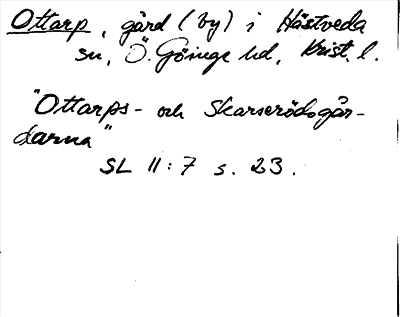 Ottarp, gård (by) i Hästveda
sn, Ö. Göinge hd, Krist. l.
"Ottarps- och Skarserödsgår-
darna"
SL 11:7 s. 23.